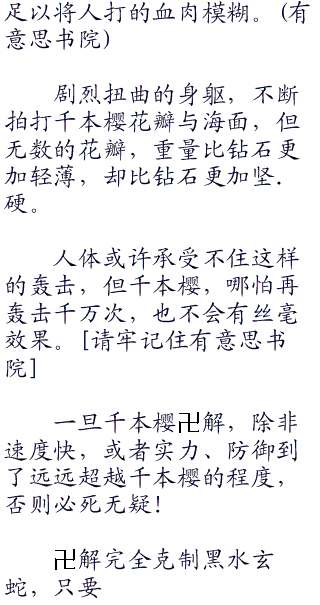 足以将人打的血肉模糊。(有
意思书院)
剧烈扭曲的身躯，不断
拍打千本樱花瓣与海面，但
无数的花瓣，重量比钻石更
加轻薄，却比钻石更加坚.
硬。
人体或许承受不住这样
的轰击，但千本樱，哪怕再
轰击千万次，也不会有丝毫
效果。[请牢记住有意思书
院]
一旦千本樱卍解，除非
速度快，或者实力、防御到
了远远超越千本樱的程度，
否则必死无疑!
卍解完全克制黑水玄
蛇，只要